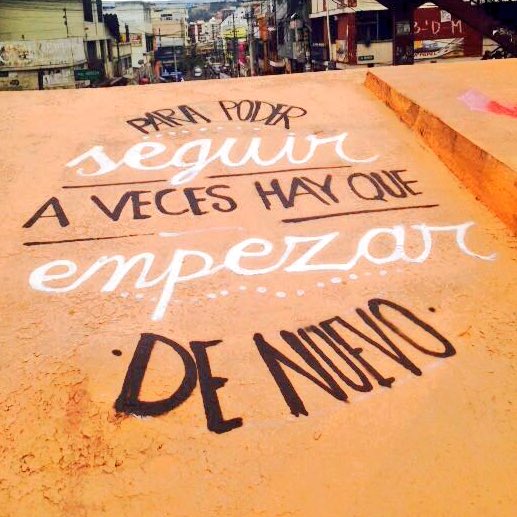 PARA PODER
seguir
A VECES HAY QUE
empezar
DE NUEVO